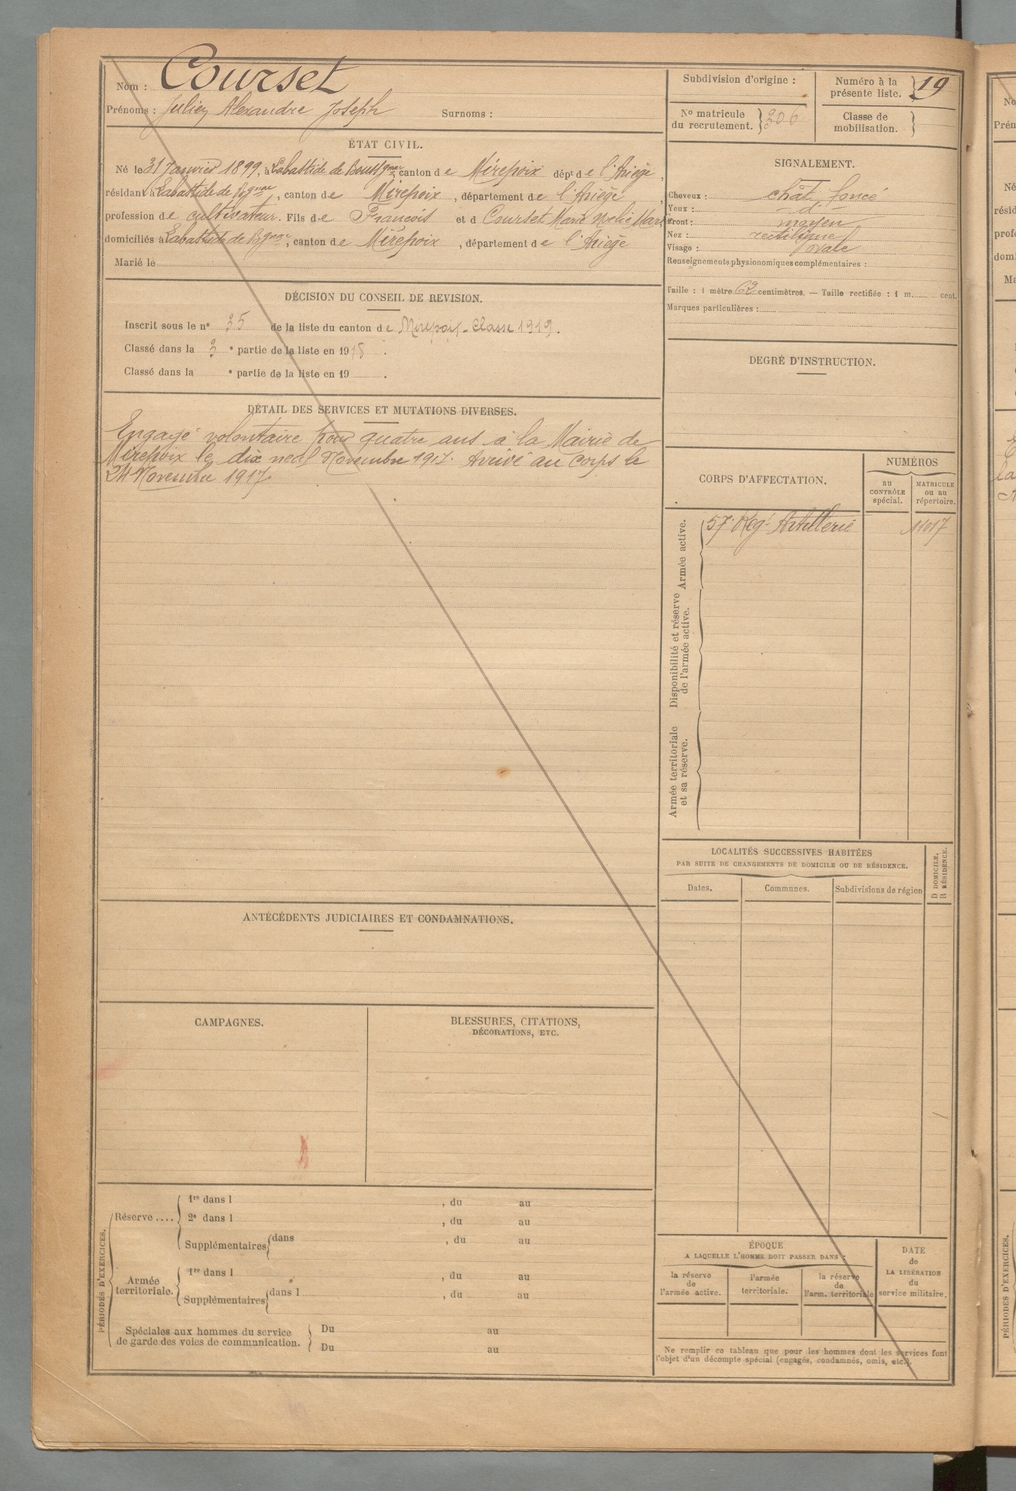 Nom : Courset
Prénoms : Julien Alexandre Joseph Surnoms :
Subdivision d'origine :
Numéro à la présente liste. 19
No matricule du recrutement. 206
Classe de mobilisation.
ÉTAT CIVIL.
Né le 31 Janvier 1899, à Labastide de canton de Mirepoix dépt de l'Ariège,
résidant à Labastide de, canton de Mirepoix, département de l'Ariège,
profession de cultivateur. Fils de Francois et d Courset Marie
domiciliés à Labastide de, canton de Mirepoix, département de l'Ariège
Marié le
SIGNALEMENT.
Cheveux : chât foncé
Yeux : d°
Front : moyen
Nez : rectiligne
Visage : ovale
Renseignements physionomiques complémentaires :
Taille : 1 mètre 62 centimètres. — Taille rectifiée : 1 m. cent.
Marques particulières :
DÉCISION DU CONSEIL DE REVISION.
Inscrit sous le n° 35 de la liste du canton de Mirepoix - Classe 1919.
Classé dans la 3 e partie de la liste en 1918.
Classé dans la e partie de la liste en 19 .
DEGRÉ D'INSTRUCTION.
DÉTAIL DES SERVICES ET MUTATIONS DIVERSES.
Engagé volontaire pour quatre ans à la Mairie de
Mirepoix le dix neuf Novembre 1917. Arrivé au corps le
24 Novembre 1917
CORPS D'AFFECTATION.
NUMÉROS
DU CONTRÔLE spécial.
MATRICULE ou au répertoire.
Armée active.
57e Régt Artillerie 11017
Disponibilité et réserve de l'armée active.
Armée territoriale et sa réserve.
LOCALITÉS SUCCESSIVES HABITÉES
PAR SUITE DE CHANGEMENTS DE DOMICILE OU DE RÉSIDENCE.
Dates. Communes. Subdivisions de région
D DOMICILE. R RÉSIDENCE.
ANTÉCÉDENTS JUDICIAIRES ET CONDAMNATIONS.
CAMPAGNES.
BLESSURES, CITATIONS,
DÉCORATIONS, ETC.
PÉRIODES D'EXERCICES.
Réserve....
1re dans l , du au
2e dans l , du au
Supplémentaires dans , du au
Armée territoriale.
1re dans l , du au
Supplémentaires dans l , du au
Spéciales aux hommes du service
de garde des voies de communication.
Du au
Du au
ÉPOQUE
A LAQUELLE L'HOMME DOIT PASSER DANS :
la réserve de l'armée active.
l'armée territoriale.
la réserve de l'arm. territoriale
DATE de LA LIBÉRATION du service militaire.
Ne remplir ce tableau que pour les hommes dont les services font
l'objet d'un décompte spécial (engagés, condamnés, omis, etc.).